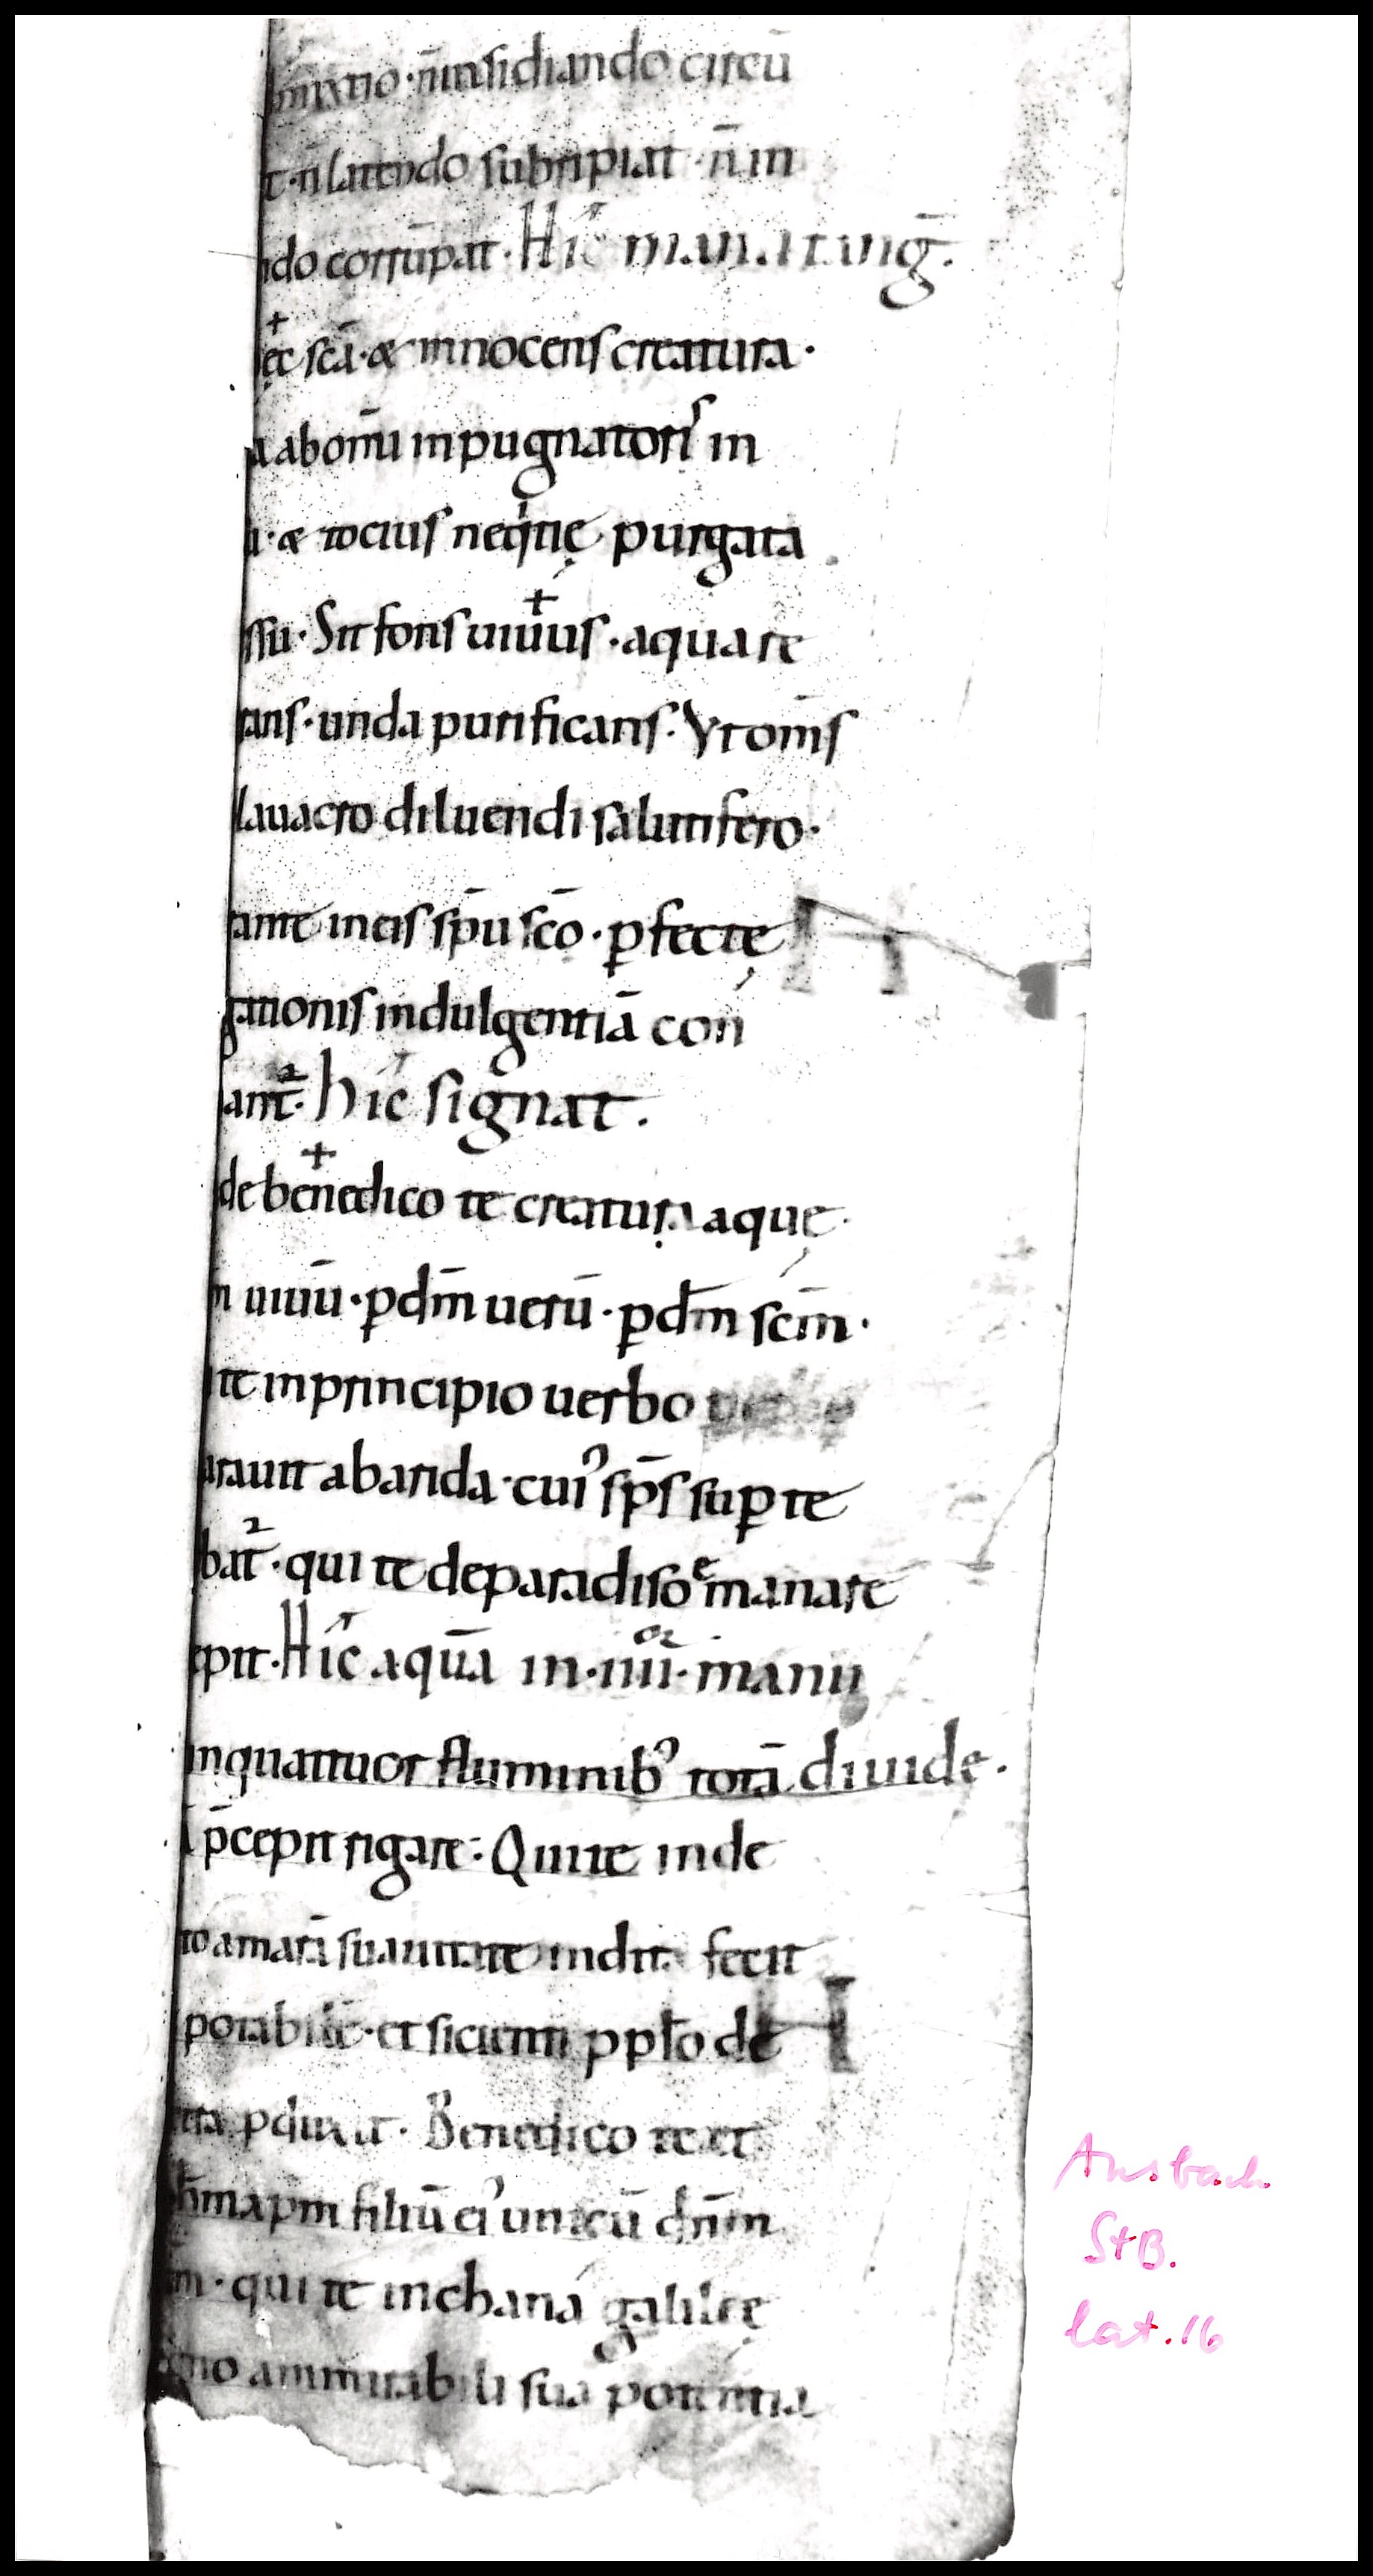 mixtio · n̄ insidiando circū
t · n̄ latendo subripiat · n̄ in
ndo corrūpat · Hic
ec sc̄a · & innocens creatura ·
a ab om̄i inpugnatoris in
u · & tocius neqͥtię purgata
ssu · Sit fons uiuus · aqua re
rans · unda purificans · Vt om̄s
lauacro diluendi salutifero ·
rante in eis sp̄u sc̄o · ꝑfectę
gationis indulgentiā con
ant᷒ · hic signat .
de benedico te creatura aquę ·
m uiuū · ꝑ dm̄ uerū · ꝑ dm̄ scm̄ ·
te in principio uerbo
arauit ab arida · cuiꝰ sp̄s suꝑ te
bat᷒ · qui te de paradiso emanare
epit · Hic aquā in · iiiiᵒʳ · manu
in quattuor fluminibꝰ totā diuide .
ā p̄cepit rigare : Qui te in de
to amarā suauitate indita fecit
potabilē · et sicienti ppl̄o de
etra ꝓduxit · Benedico te et
ih̄m xp̄m filiū eiꝰ unicū dn̄m
m · qui te in chaná galileę
gno ammirabili sua potentia
Ansbach
StB.
lat. 16